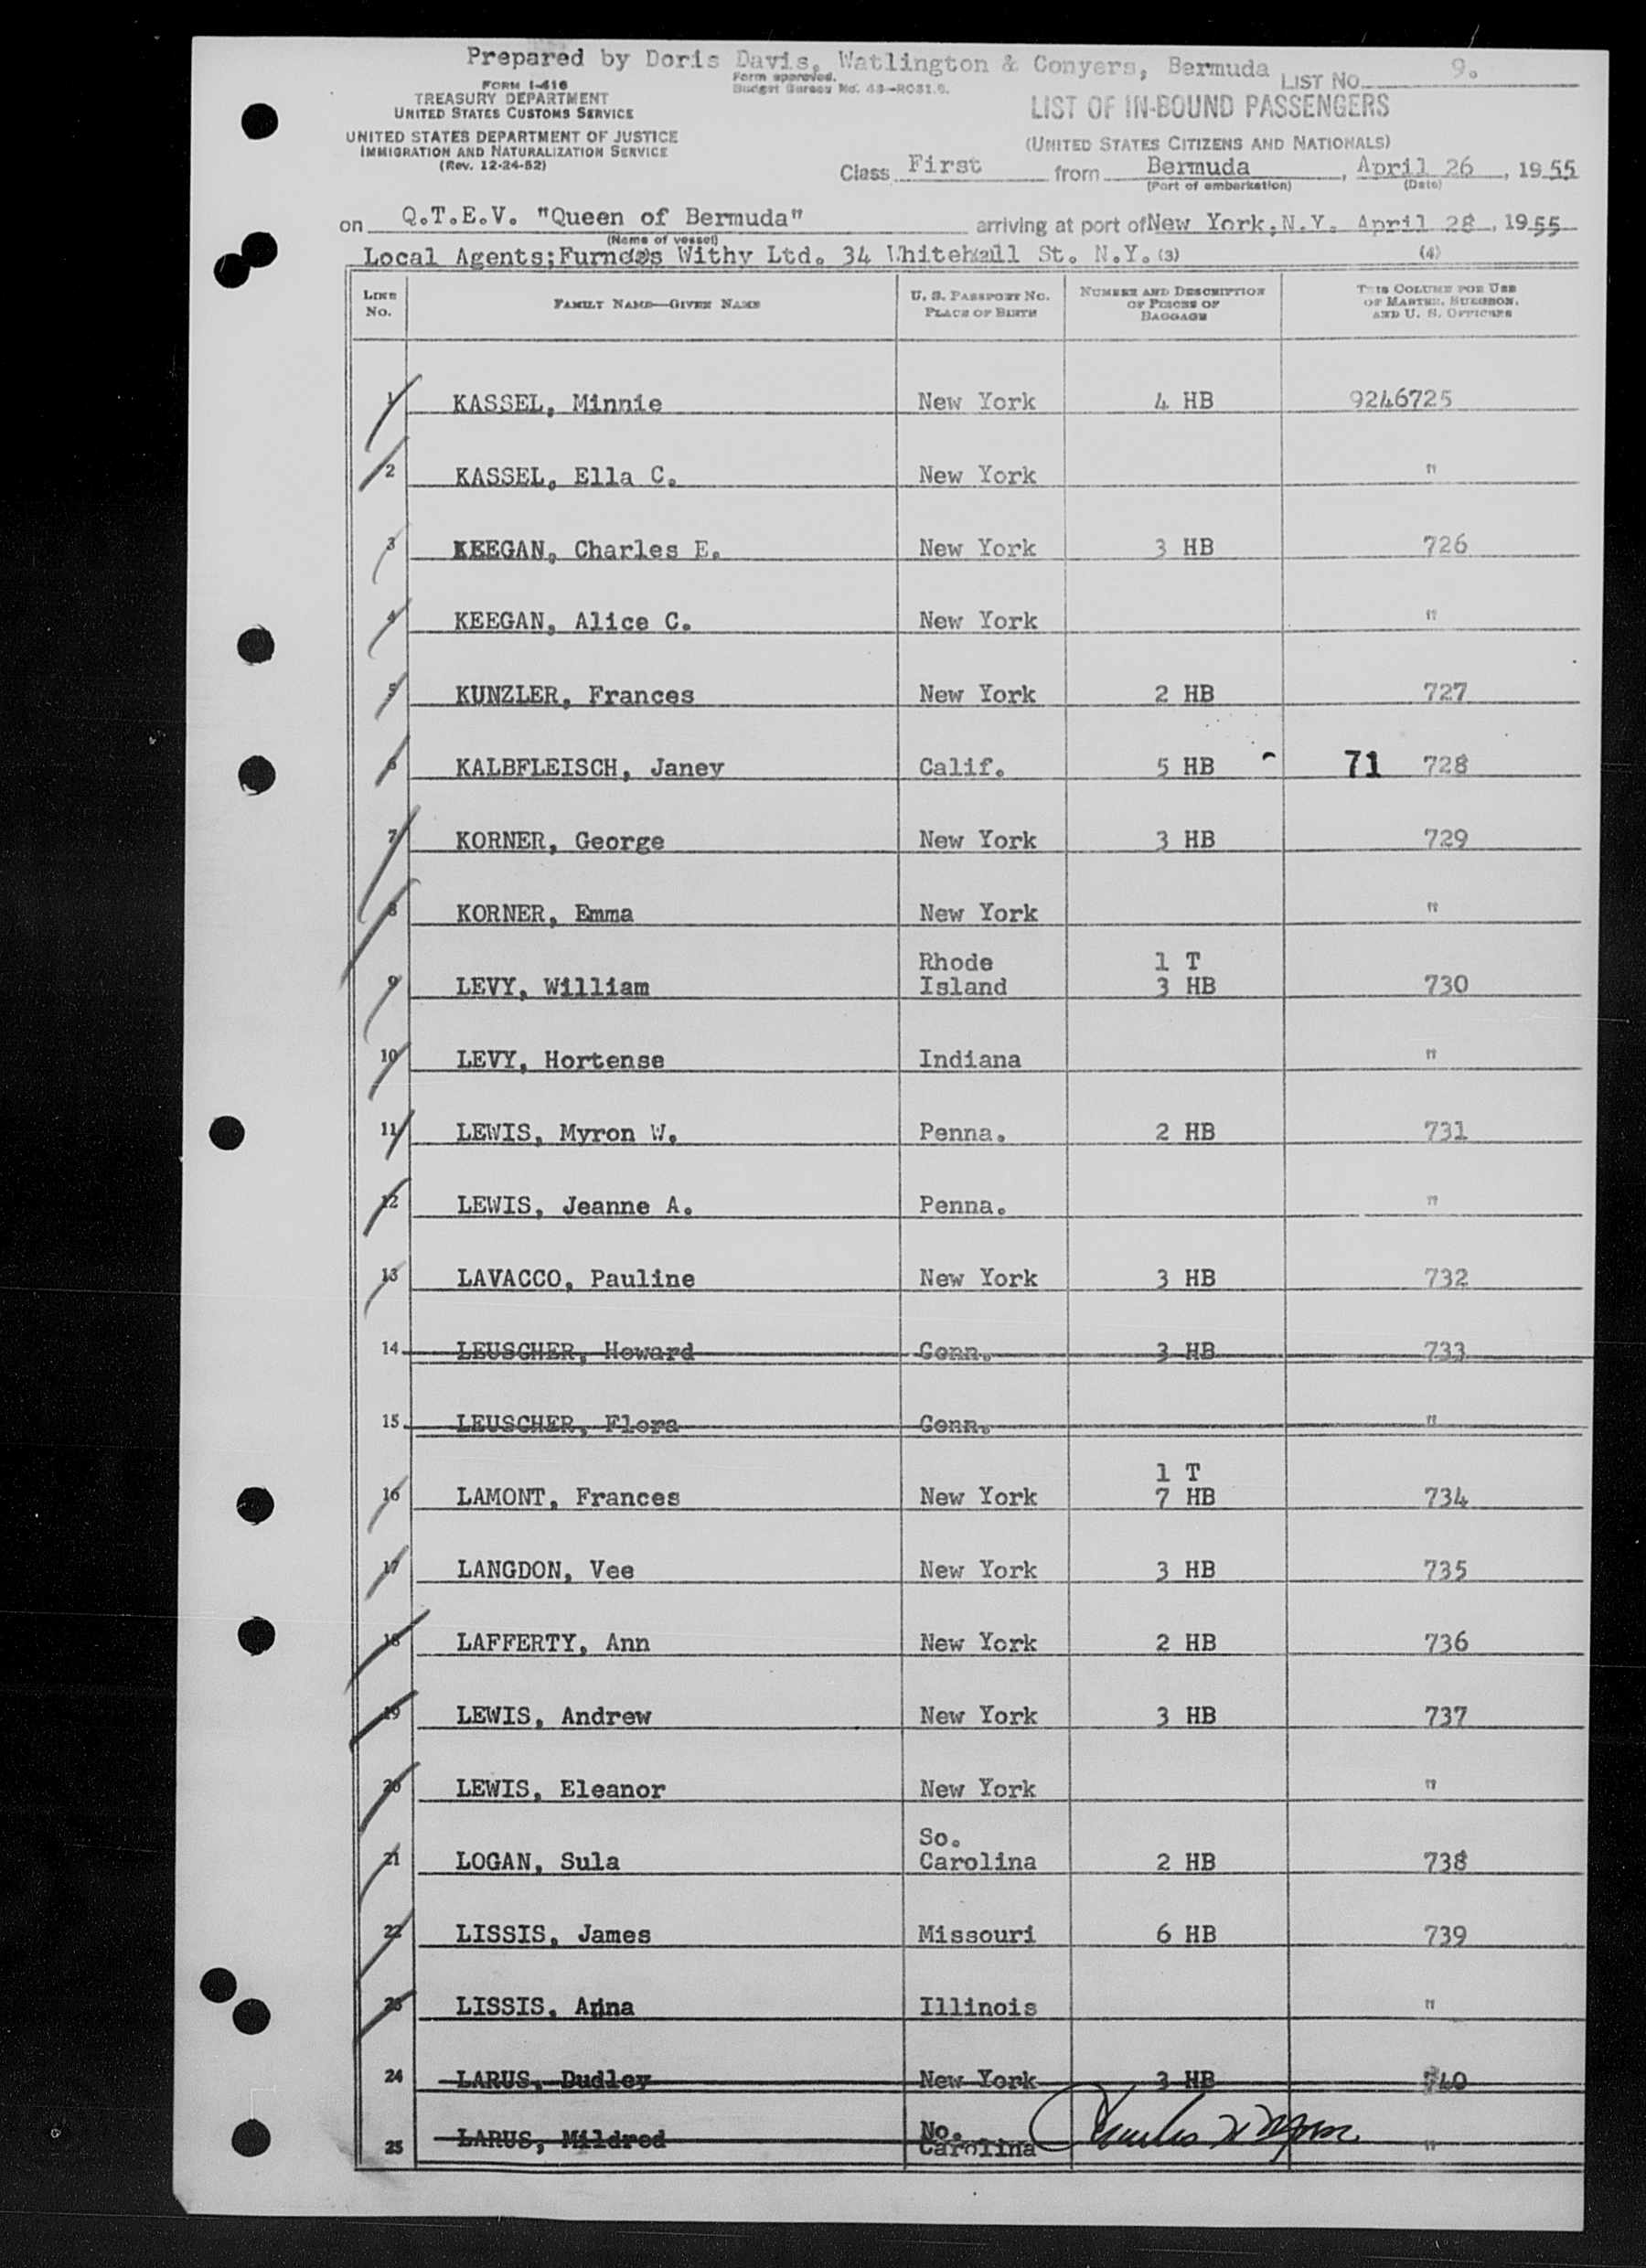 Prepared by Doris Davis, Watlington & Conyers, Bermuda
LIST NO. 9.
FORM I-416
TREASURY DEPARTMENT
UNITED STATES CUSTOMS SERVICE
UNITED STATES DEPARTMENT OF JUSTICE
IMMIGRATION AND NATURALIZATION SERVICE
(Rev. 12-24-52)
Form approved.
Budget Bureau No. 43-R031.6.
LIST OF IN-BOUND PASSENGERS
(UNITED STATES CITIZENS AND NATIONALS)
Class First from Bermuda, April 26, 1955
(Port of embarkation) (Date)
on Q.T.E.V. "Queen of Bermuda" arriving at port of New York, N.Y. April 28, 1955
(Name of vessel)
Local Agents; Furness Withy Ltd. 34 Whitehall St. N.Y. (3) (4)
LINE No. FAMILY NAME—GIVEN NAME U. S. PASSPORT NO. PLACE OF BIRTH NUMBER AND DESCRIPTION OF PIECES OF BAGGAGE THIS COLUMN FOR USE OF MASTER, SURGEON, AND U. S. OFFICERS
1 KASSEL, Minnie New York 4 HB 9246725
2 KASSEL, Ella C. New York "
3 KEEGAN, Charles E. New York 3 HB 726
4 KEEGAN, Alice C. New York "
5 KUNZLER, Frances New York 2 HB 727
6 KALBFLEISCH, Janey Calif. 5 HB 71 728
7 KORNER, George New York 3 HB 729
8 KORNER, Emma New York "
9 LEVY, William Rhode Island 1 T 3 HB 730
10 LEVY, Hortense Indiana "
11 LEWIS, Myron W. Penna. 2 HB 731
12 LEWIS, Jeanne A. Penna. "
13 LAVACCO, Pauline New York 3 HB 732
14 LEUSCHER, Howard Conn. 3 HB 733
15 LEUSCHER, Flora Conn. "
16 LAMONT, Frances New York 1 T 7 HB 734
17 LANGDON, Vee New York 3 HB 735
18 LAFFERTY, Ann New York 2 HB 736
19 LEWIS, Andrew New York 3 HB 737
20 LEWIS, Eleanor New York "
21 LOGAN, Sula So. Carolina 2 HB 738
22 LISSIS, James Missouri 6 HB 739
23 LISSIS, Anna Illinois "
24 LARUS, Dudley New York 3 HB 740
25 LARUS, Mildred No. Carolina "